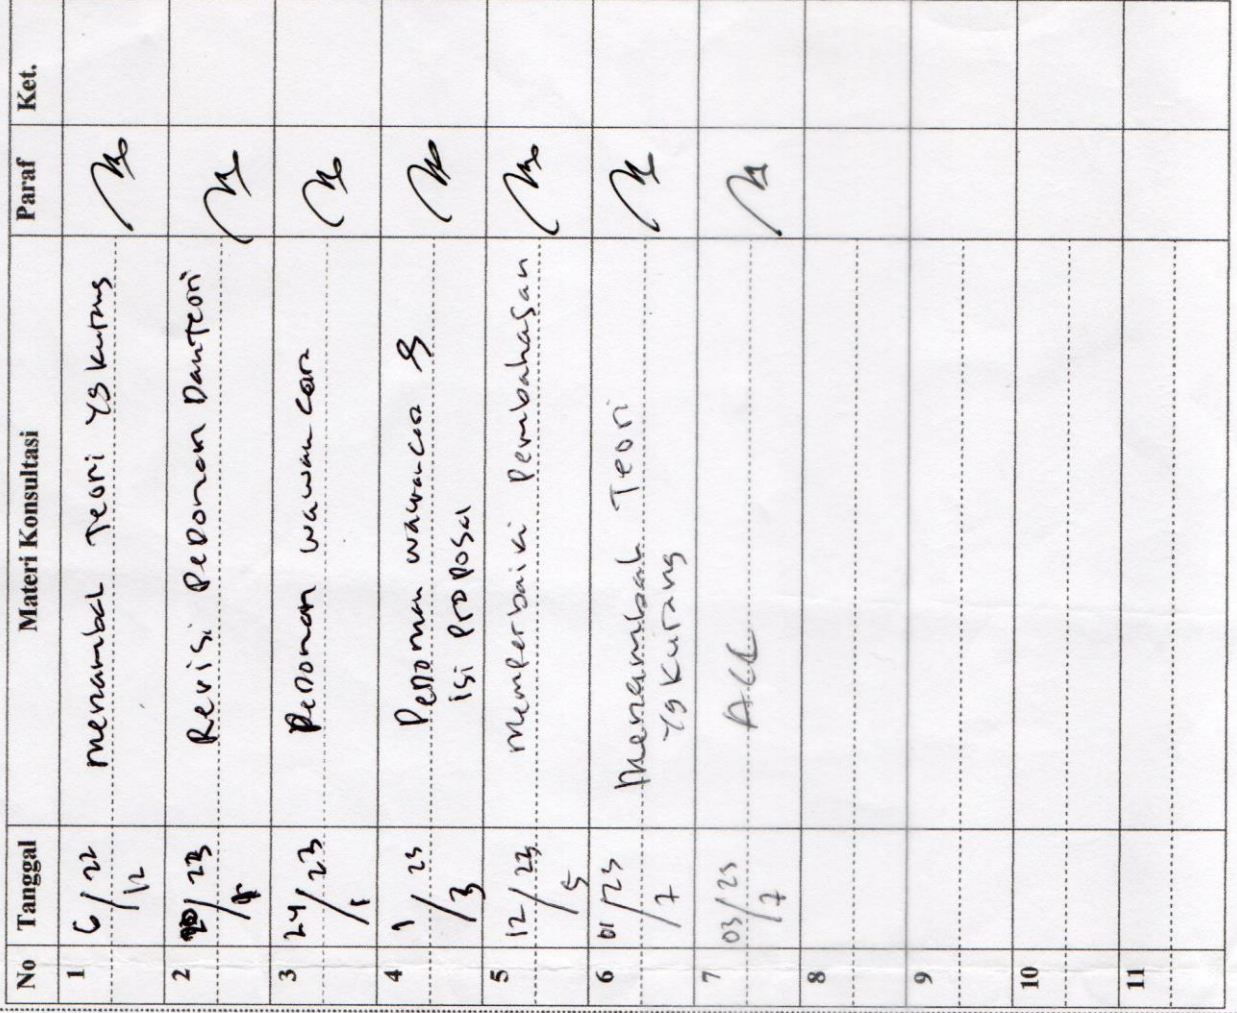 No Tanggal Materi Konsultasi Paraf Ket.
1 6/12 22 menambah Teori yg kurang
2 Revisi Pedoman Dan Teori
3 24/1 23 Pedoman wawancara
4 1/3 23 Pedoman wawancara &
isi proposal
5 12/5 23 Memperbaiki Pembahasan
6 01/7 23 Menambah Teori
yg kurang
7 03/7 23 ACC
8
9
10
11